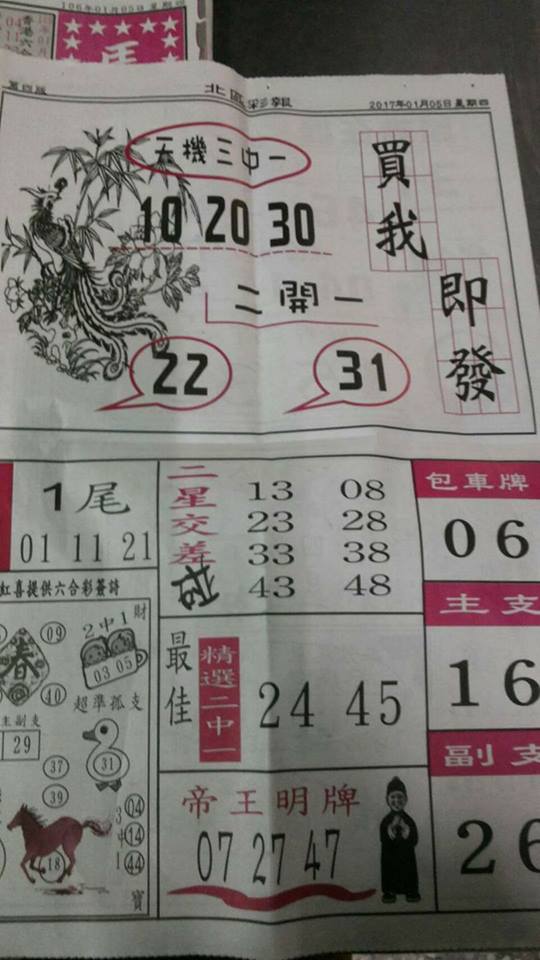 106年01月05日星期四
香港六合
04
11
馬
第四版
北區彩報
2017年01月05日星期四
天機三中一
10 20 30
二開一
22
31
買我
即發
1尾
01 11 21
二星交差
13 08
23 28
33 38
43 48
包車牌
06
主支
16
副支
26
最佳
精選二中一
24 45
帝王明牌
07 27 47
虹喜提供六合彩簽詩
財
春
09
40
2中1
03 05
超準孤支
主副支
29
37
39
31
18
3中1
04
14
44
寶